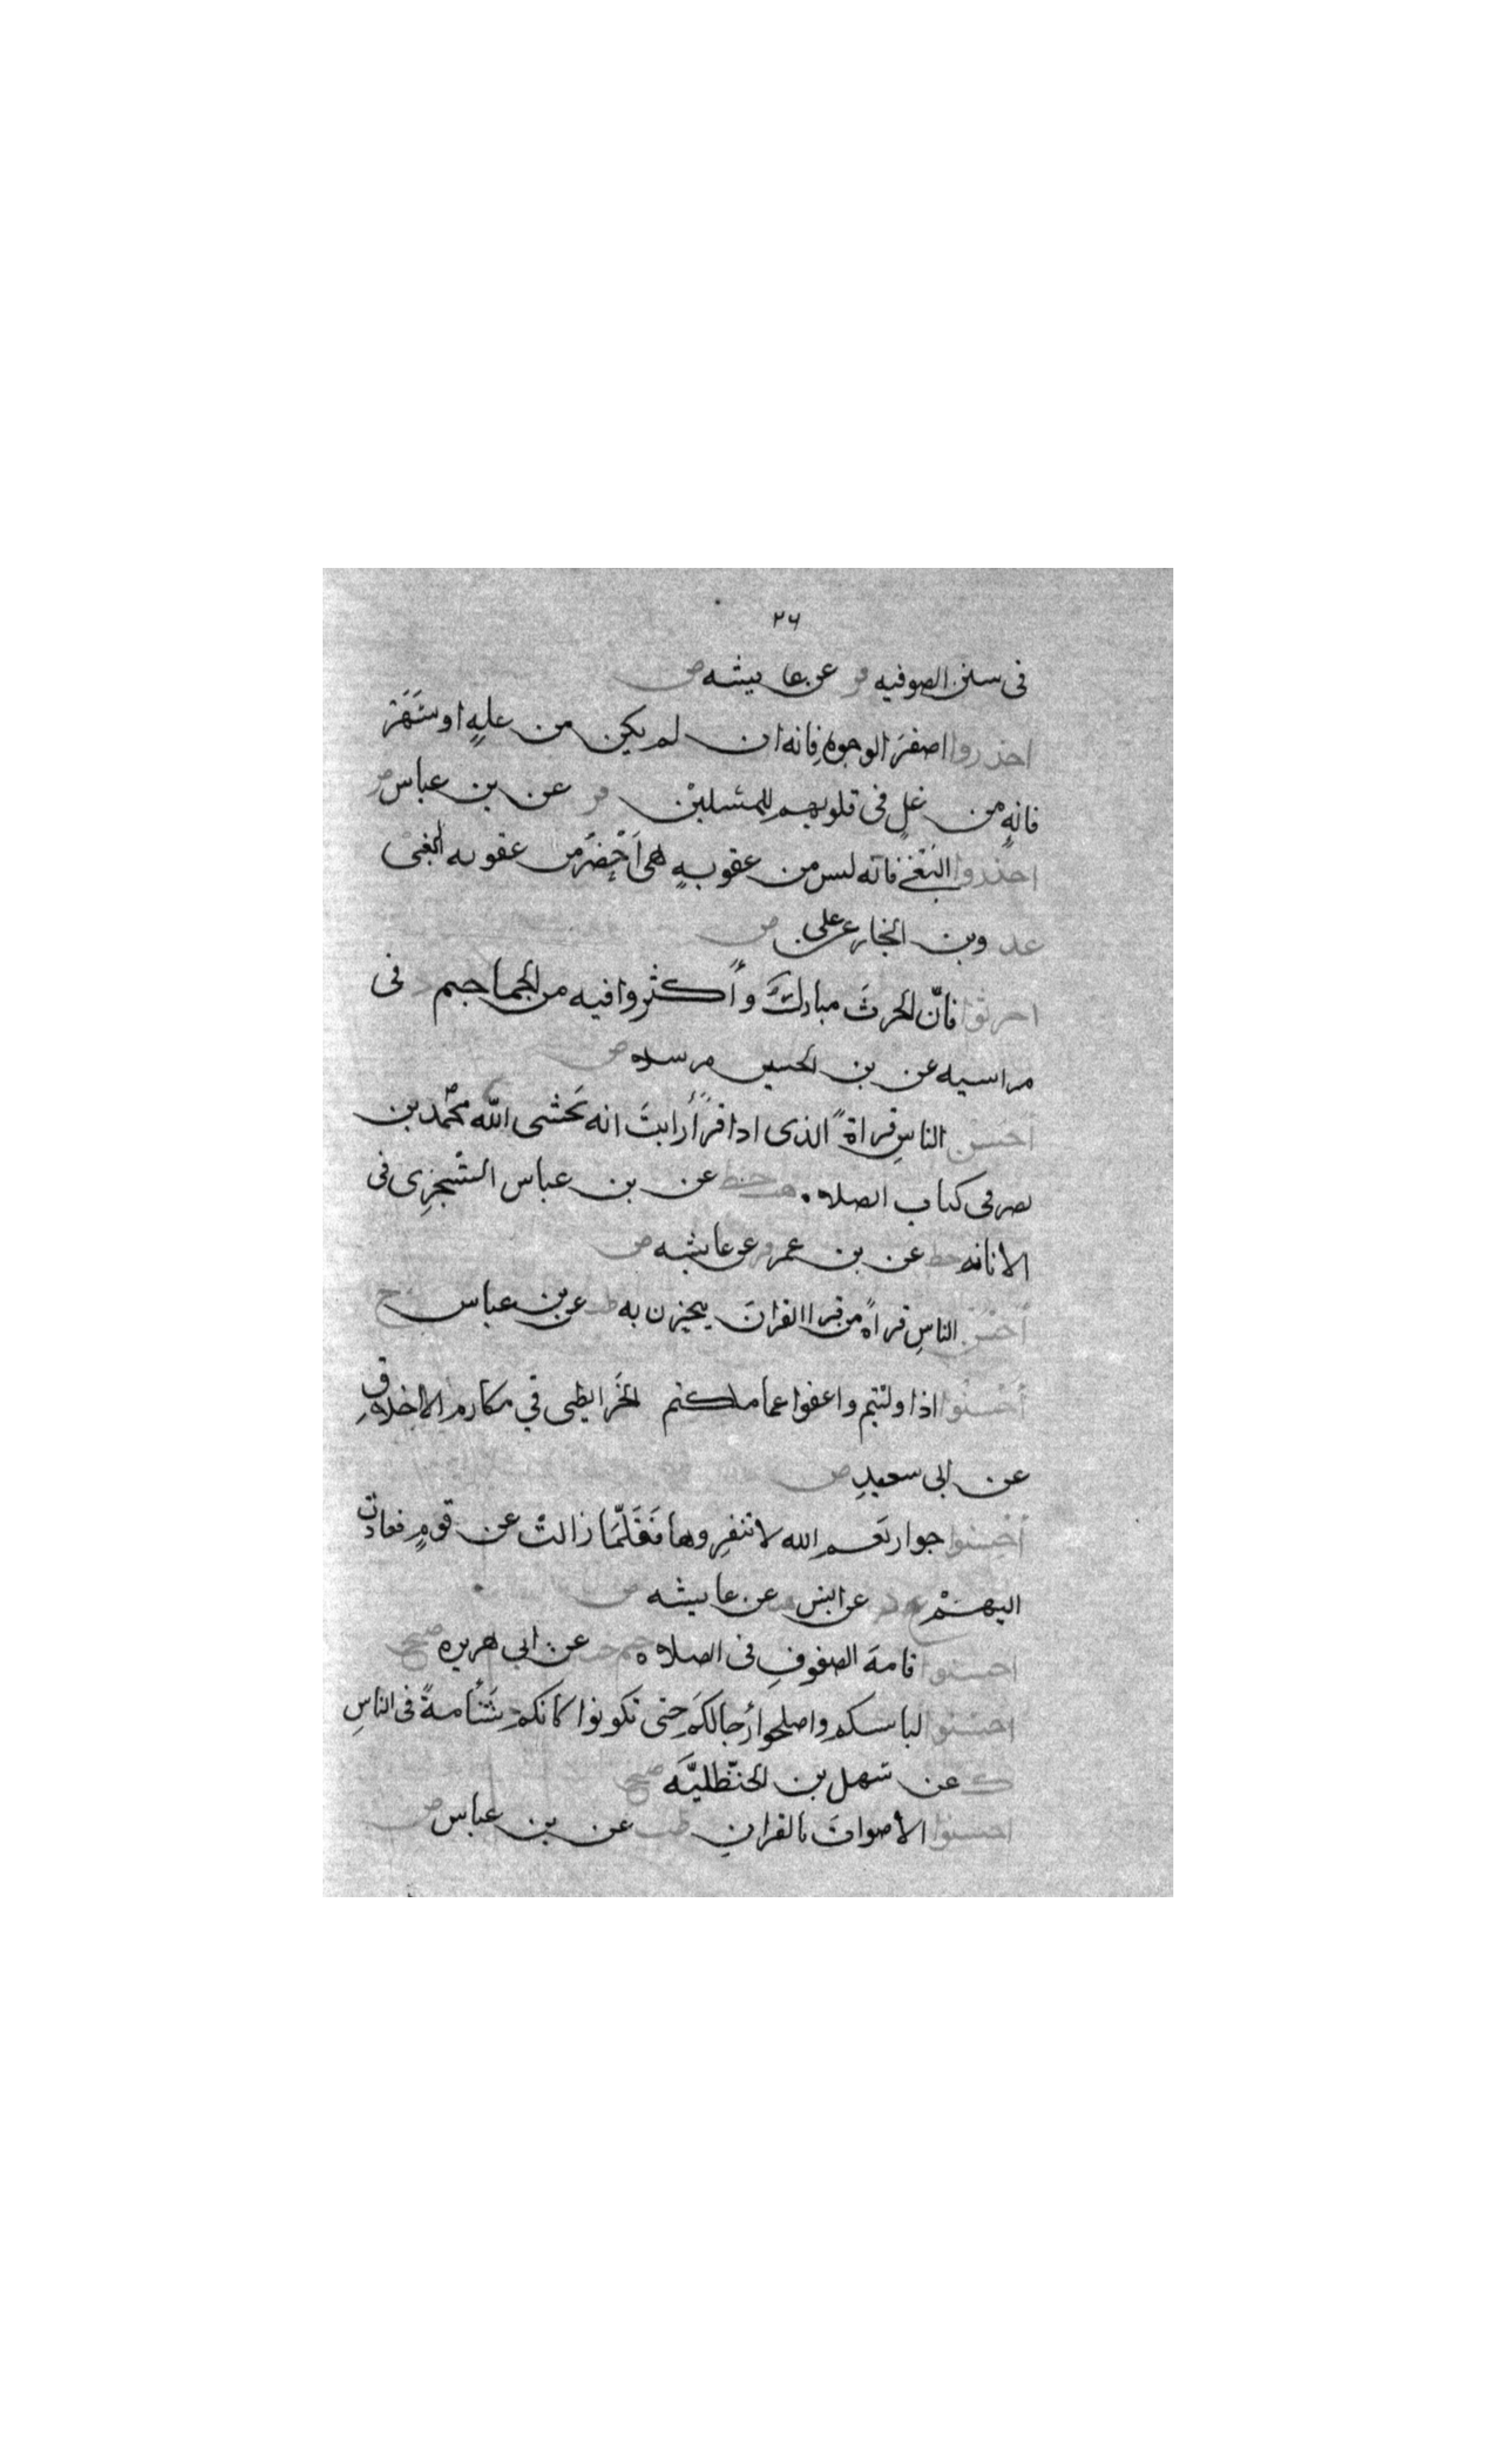 ٢٦
فى سنن الصوفيه فر عن عايشه ض
احذروا اصفرَ الوجوهِ فانه ان لم يكن من علةٍ او سَهَرٍ
فانه من غلٍ فى قلوبهم للمسلمين فر عن بن عباس ض
احذروا البَغْىَ فانه ليس من عقوبهٍ هى اَحْضَرُ من عقوبه البغى
عد وبن النجار عن على ض
احرثوا فانّ الحرثَ مباركٌ وأكثروا فيه من الجماجم د فى
مراسيه عن بن الحسين مرسلا ض
أحسنُ الناسِ قراةً الذى اذا قرأ رايتَ انه يَخشى اللّه محمّد بن
نصر فى كتاب الصلاه هب خط عن بن عباس السّجزِى فى
الابانه خط عن بن عمر فر عن عايشه ض
أحسنُ الناسِ قراةً من قرا القرانَ يتحزن به طب عن بن عباس ح
أَحْسنُوا اذا وليتم واعفوا عما ملكتم الخَرايطى فى مكارم الاخلاقِ
عن ابى سعيدٍ ض
أَحْسِنوا جوار نعم الله لا تنفِروها فَقَلّمَا زالتْ عن قومٍ فعادت
اليهمْ ع عد عن انس هب عن عايشه ض
احسنوا اقامةَ الصفوفِ فى الصلاه حم حب عن ابى هريره صح
احسنوا لباسكم واصلحوا رحالكمَ حتى تكونوا كانكم شَأمةً فى الناسِ
ك عن سهل بن الحنظليَّه صح
احسنوا الأصواتَ بالقرانِ طب عن بن عباس ض